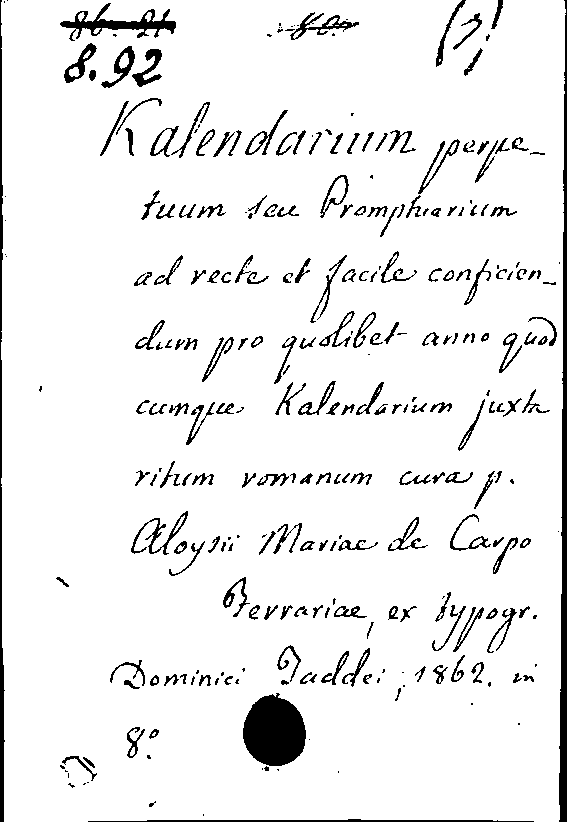 86. 21 80.
8.92
Kalendarium perpe-
tuum seu Promptuarium
ad recte et facile conficien-
dum pro quolibet anno quod
cumque Kalendarium juxta
ritum romanum cura p.
Aloysii Mariae de Carpo
Ferrariae, ex typogr.
Dominici Taddei, 1862. in
8.º